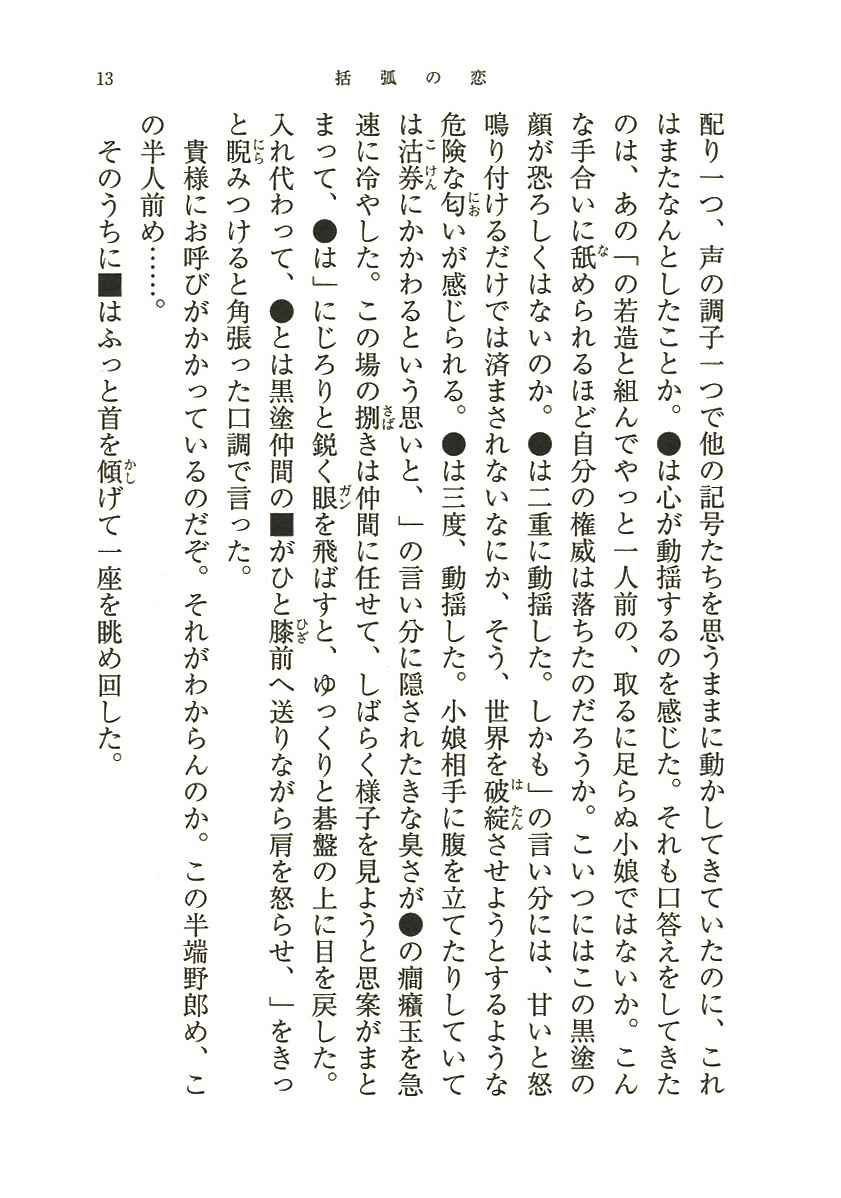 13
括弧の恋
配り一つ、声の調子一つで他の記号たちを思うままに動かしてきていたのに、これ
はまたなんとしたことか。●は心が動揺するのを感じた。それも口答えをしてきた
のは、あの「の若造と組んでやっと一人前の、取るに足らぬ小娘ではないか。こん
な手合いに舐められるほど自分の権威は落ちたのだろうか。こいつにはこの黒塗の
顔が恐ろしくはないのか。●は二重に動揺した。しかも」の言い分には、甘いと怒
鳴り付けるだけでは済まされないなにか、そう、世界を破綻させようとするような
危険な匂いが感じられる。●は三度、動揺した。小娘相手に腹を立てたりしていて
は沽券にかかわるという思いと、」の言い分に隠されたきな臭さが●の癇癪玉を急
速に冷やした。この場の捌きは仲間に任せて、しばらく様子を見ようと思案がまと
まって、●は」にじろりと鋭く眼を飛ばすと、ゆっくりと碁盤の上に目を戻した。
入れ代わって、●とは黒塗仲間の■がひと膝前へ送りながら肩を怒らせ、」をきっ
と睨みつけると角張った口調で言った。
貴様にお呼びがかかっているのだぞ。それがわからんのか。この半端野郎め、こ
の半人前め……。
そのうちに■はふっと首を傾げて一座を眺め回した。